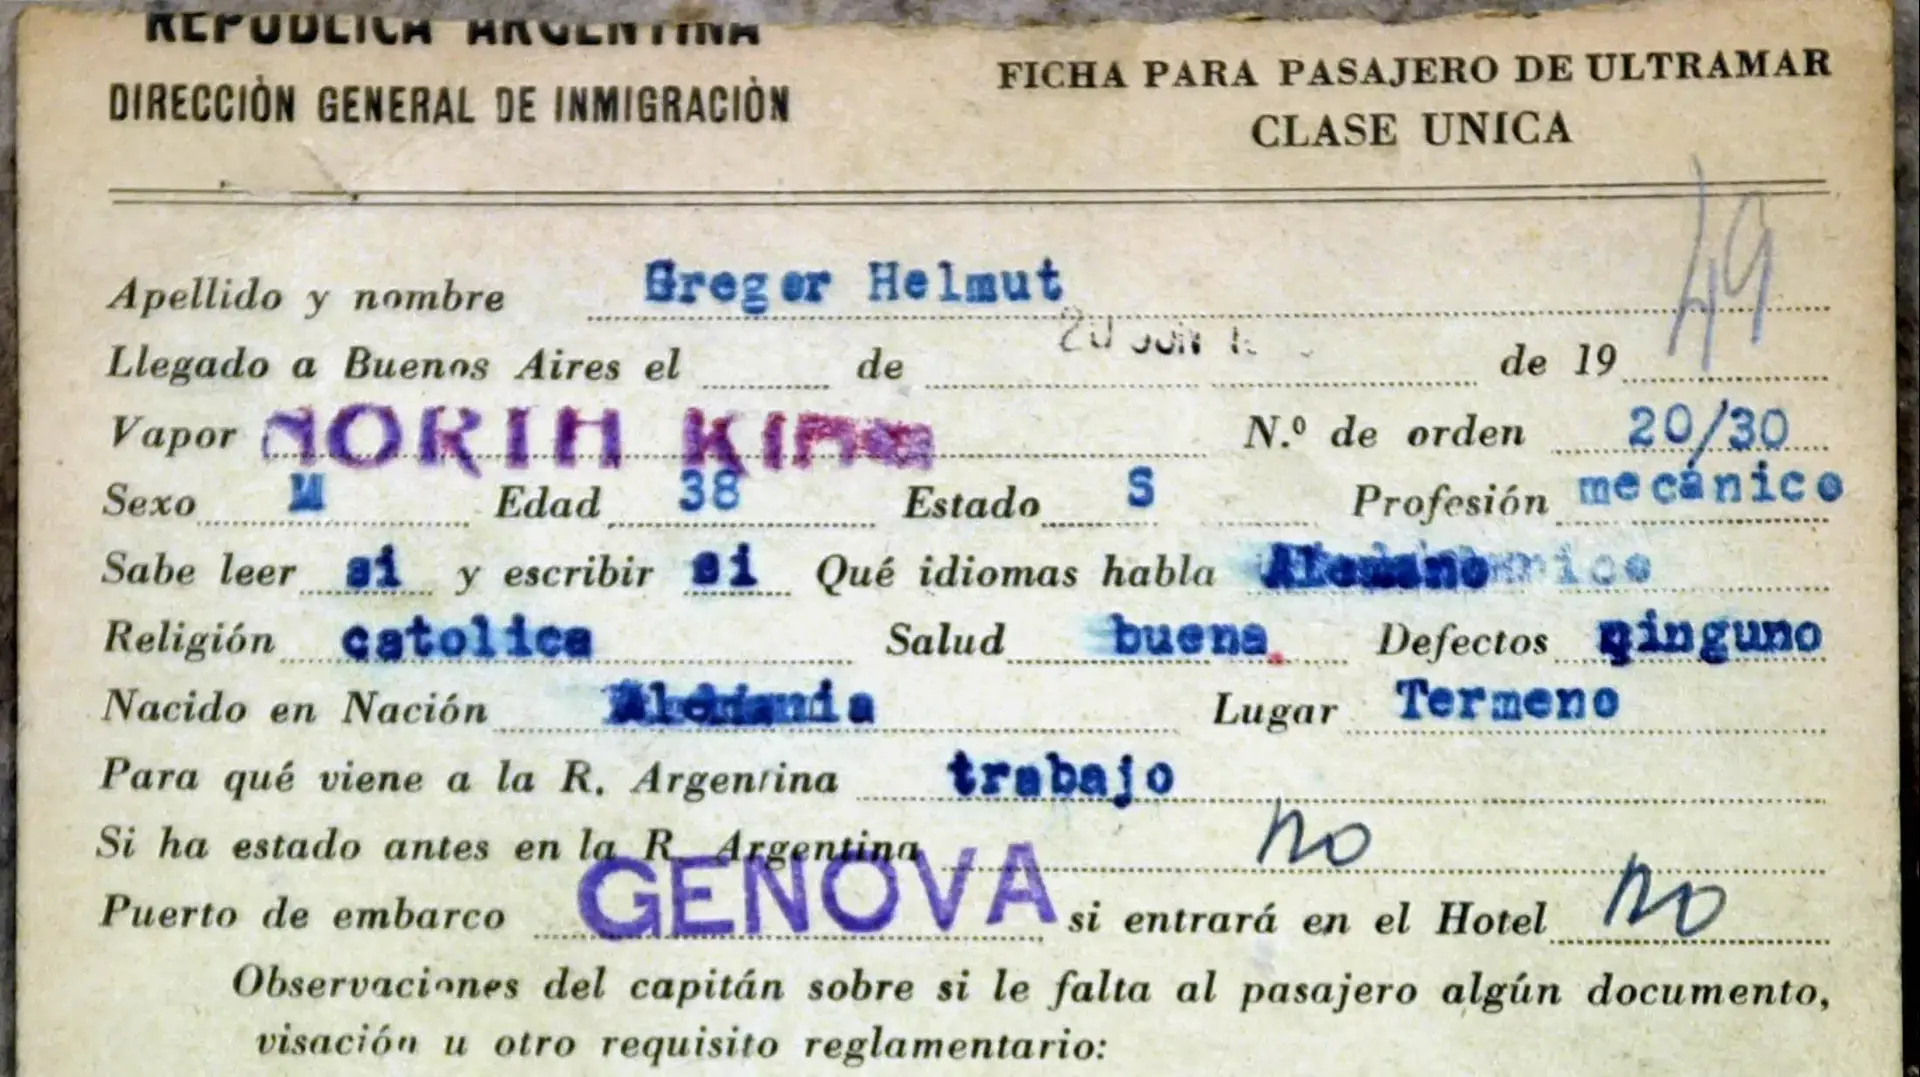 REPUBLICA ARGENTINA
DIRECCIÒN GENERAL DE INMIGRACIÒN
FICHA PARA PASAJERO DE ULTRAMAR
CLASE UNICA
Apellido y nombre Gregor Helmut
Llegado a Buenos Aires el de 20 JUN de 19 49
Vapor NORTH KING N.º de orden 20/30
Sexo M Edad 38 Estado S Profesión mecánico
Sabe leer si y escribir si Qué idiomas habla
Religión catolica Salud buena Defectos ninguno
Nacido en Nación Alemania Lugar Termeno
Para qué viene a la R. Argentina trabajo
Si ha estado antes en la R. Argentina no
Puerto de embarco GENOVA si entrará en el Hotel no
Observaciones del capitán sobre si le falta al pasajero algún documento,
visación u otro requisito reglamentario: